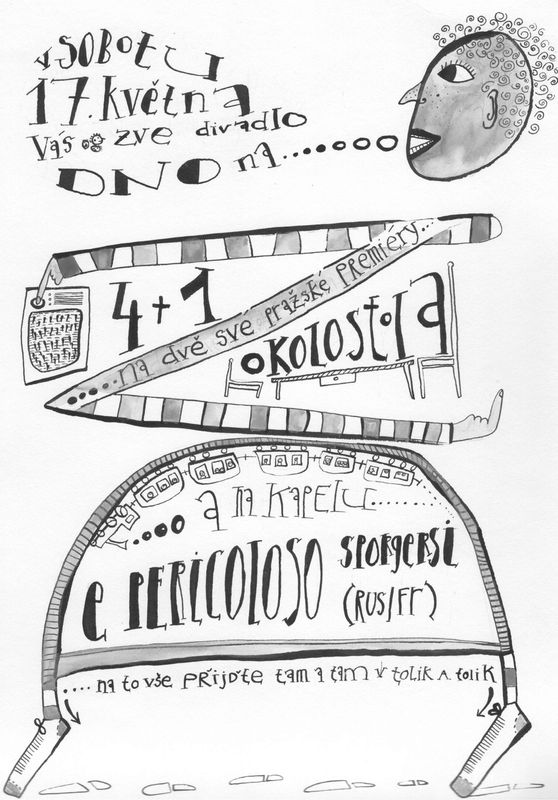 v SOBOTU
17. května
Vás zve divadlo
DNO na.........
4+1
......na dvě své pražské PREMIÉRY...
OKOLOSTOLA
....a na KAPELU........
e PERICOLOSO SPORGERSI
(RUS/Fr)
....na to vše přijďte tam a tam v tolik A tolik